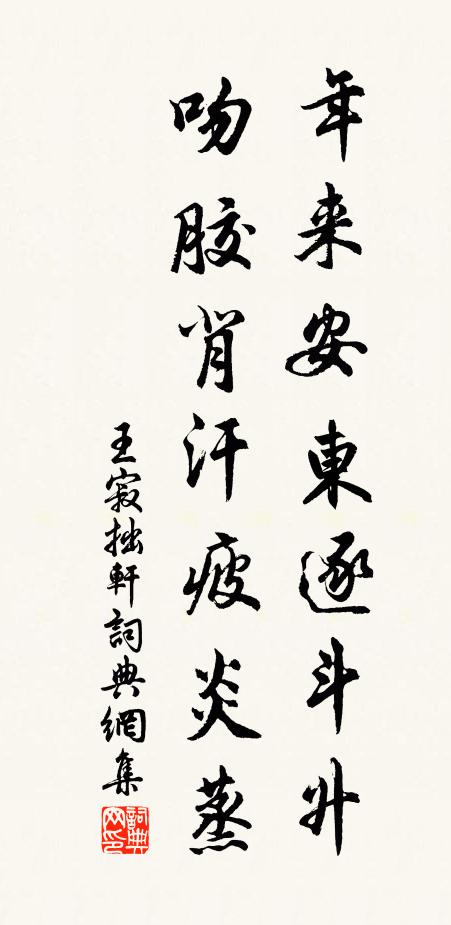 年来安東逐斗升
吻膠背汗疲炎蒸
王寂拙軒詞典網集
詞典网印